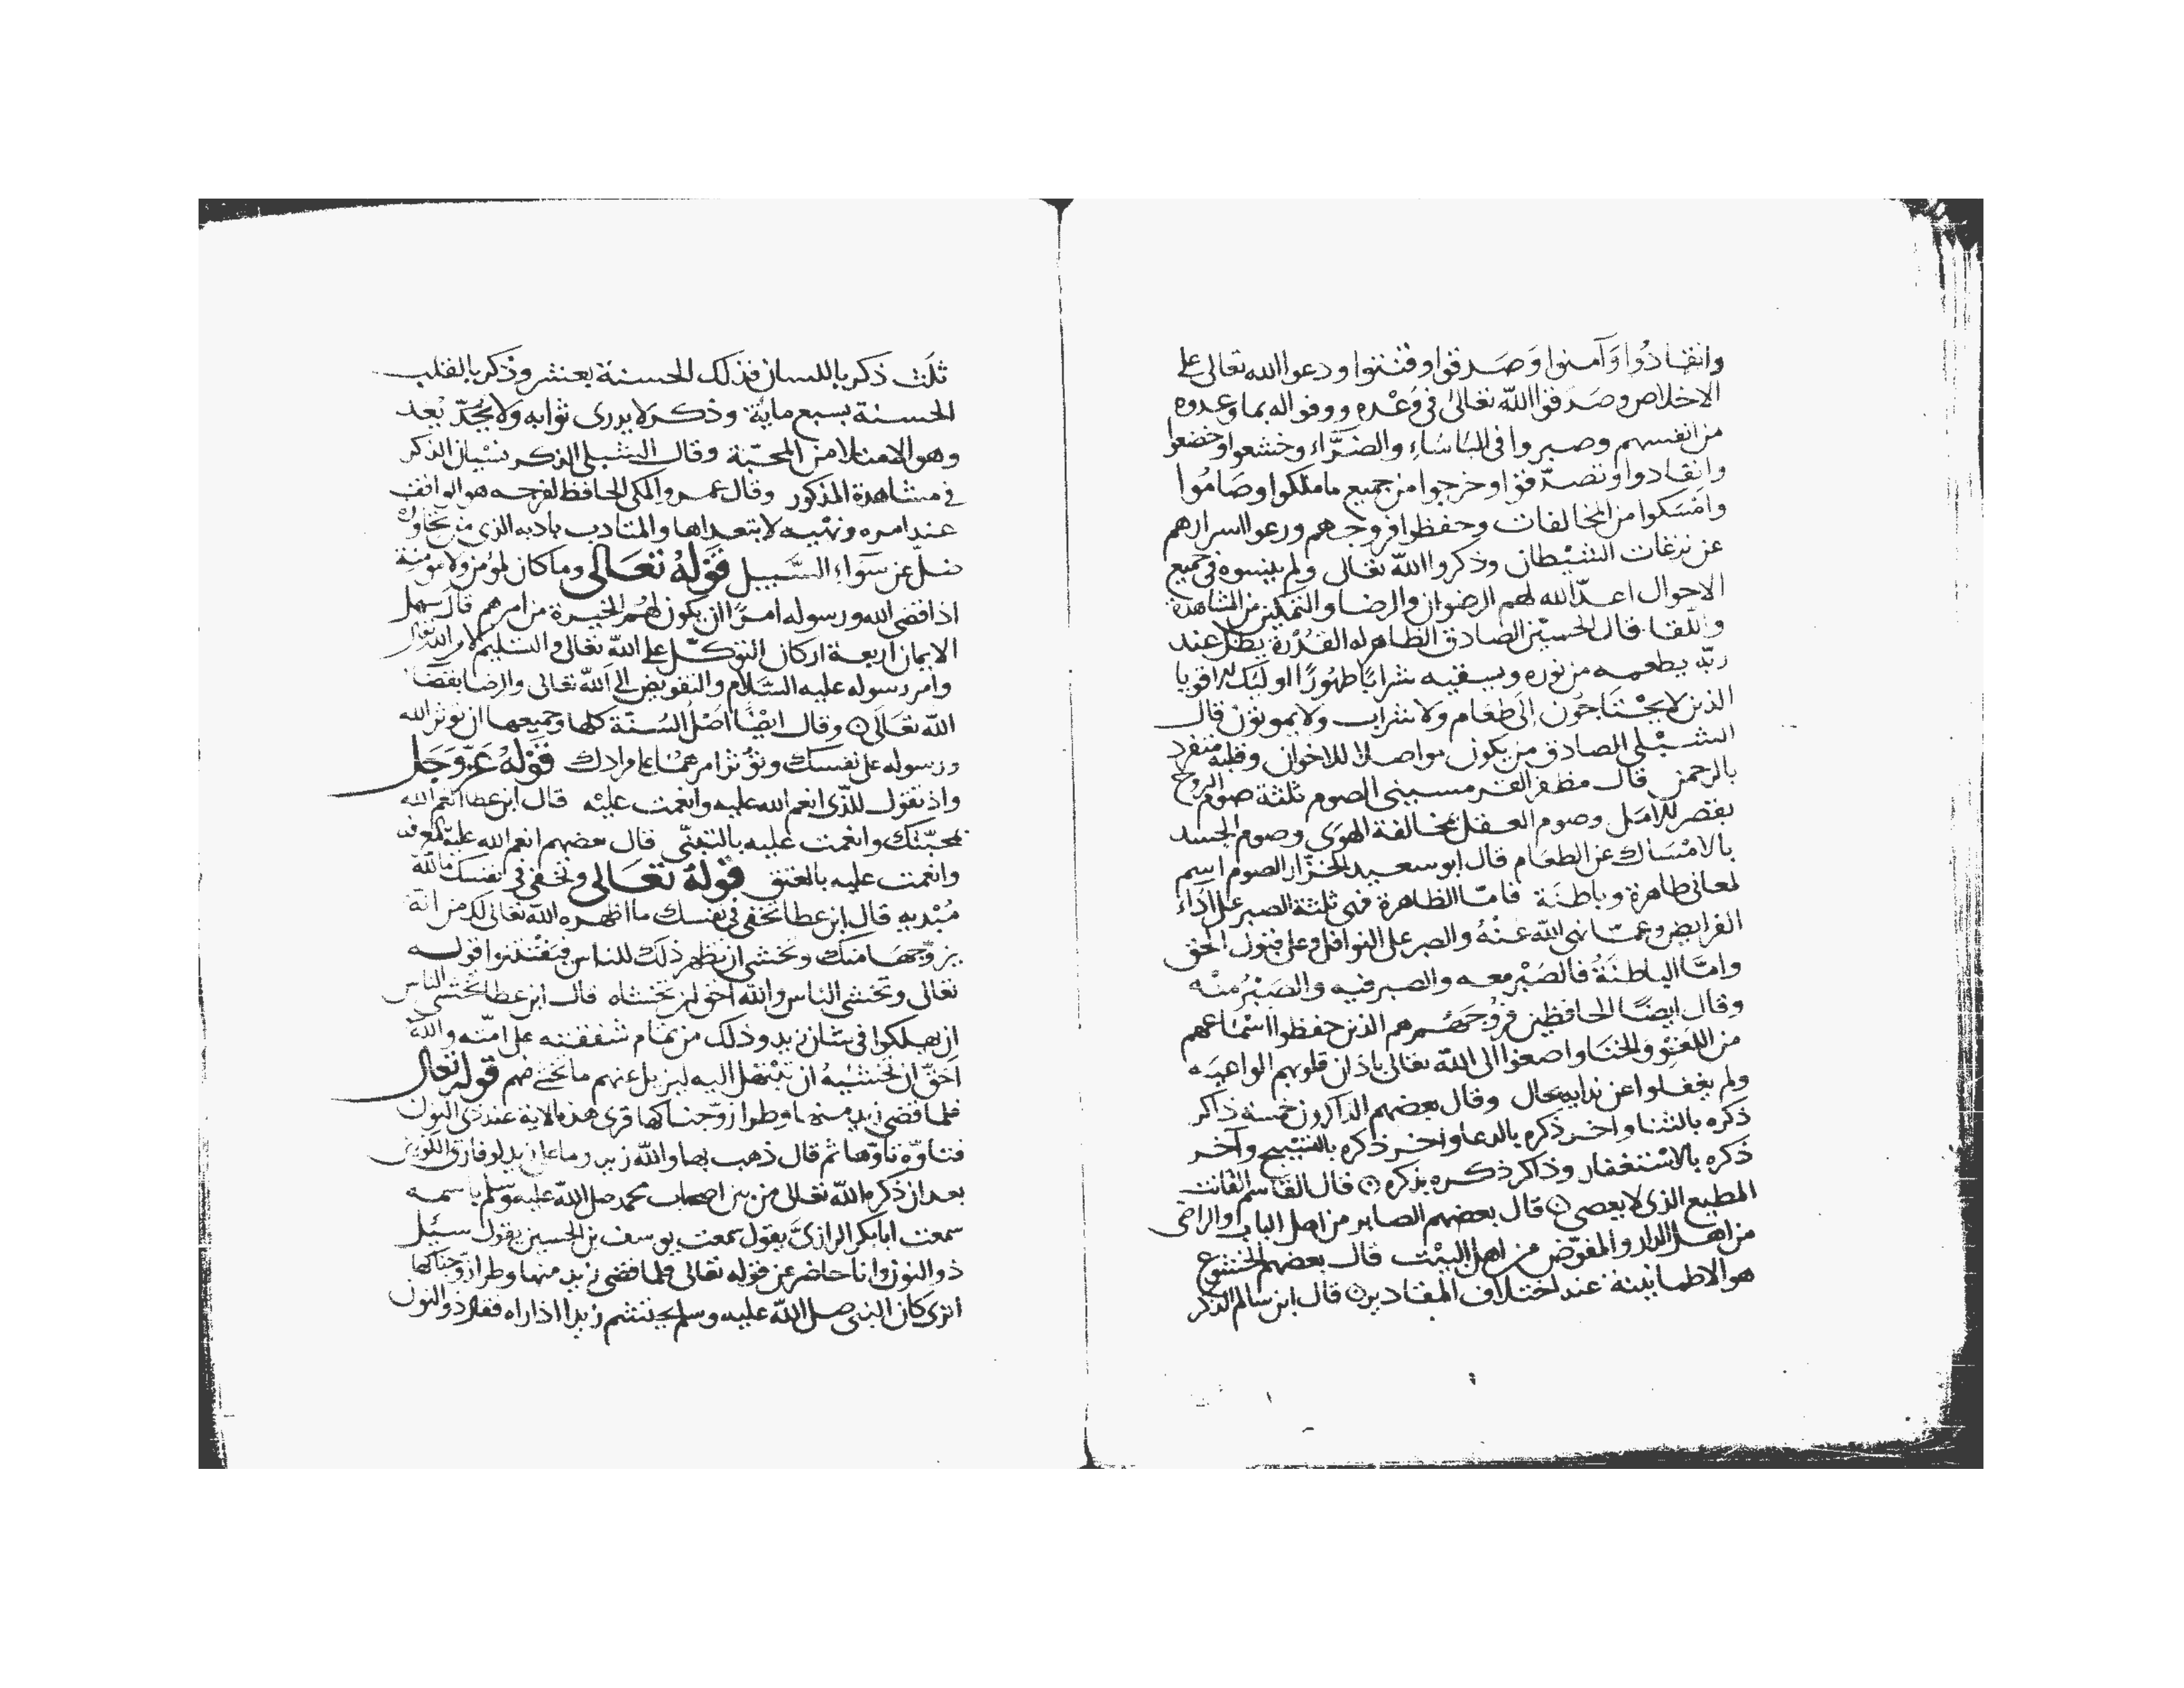 وانقادُوا وَآمنوا وَصَدقوا وقنتوا ودعوا الله تعالى على
الاخلاص وصَدقوا الله تعالى في وَعْده ووفوا له بما وعدوه
من انفسهم وصبروا في البَاسَاءِ والضرَّاء وخشعوا وخضعوا
وانقادوا وتصدّقوا وخرجوا من جميع ما ملكوا وصَامُوا
وامْسَكوا من المخالفات وحفظوا فروجهم ورعوا اسرارهم
عن نزغات الشيْطان وذكروا الله تعالى ولم ينسوه في جميع
الاحوال اعدّ الله لهم الرضوان والرضا والتمكين من المشاهدة
واللقا قال الحسيْن الصادق الظاهر له القدْرة يظل عند
ربّه يطعمه من نوره ويسقيه شرابًا طهورًا اوليك اقويا
الذين لا يحْتَاجُون إلى طعَام ولا شراب ولا يموتون قال
الشبْلي الصادق من يكون مواصلا للاخوان وقلبه منفرد
بالرحمن قال مظفر القرمسيني الصوم ثلثة صوم الروح
بقصر الامَل وصوم العقل بمخالفة الهوَى وصوم الجسد
بالامْسَاك عن الطعَام قال ابو سعيد الخرّاز الصوم اسم
لمعاني ظاهرة وباطنَة فامّا الظاهرة فهى ثلثة الصبر على اَدَاءِ
الفرايض وعمّا نهى الله عنْهُ والصبر على النوافل وعلى قبول الحق
وامّا الباطنَةُ فالصَبْر معه والصبر فيه والصَبْرُ منْه
وقال ايضًا الحافظين فرُوجَهُم هم الذين حفظوا اسْمَاعهم
من اللغْوِ والخنَا واصغوا الى الله تعالى باذان قلوبهم الواعيَه
ولم يغفلوا عن ندايه بحال وقال بعضهم الذاكرون خمسة ذاكر
ذكره بالثنا واخر ذكره بالدعا واخر ذكره بالتسْبيح وآخر
ذكره بالاسْتغفار وذاكر ذكره بذكره قال القاسم القانت
المطيع الذي لا يعصي قال بعضهم الصابر من اهل الباب والراضي
من اهل الدار والمفوّض من اهل البيْت قال بعضهم الخشوع
هو الاطمانينة عند اختلاف المقادير قال ابن سالم الذكر
ثلَث ذكر باللسان فذلك الحسنة بعشر وذكر بالقلب
الحسنة بسبع ماية وذكر لا يدرى ثوابه ولا يُحَدّ بُعد
وهو الامتلا من المحبّة وقال الشبلي الذكر نسْيان الذكر
في مشاهدة المذكور وقال عمرو المكي الحافظ لفرجه هو الواقف
عند امره ونهْيه لا يتعداها والمتادب بادبه الذي من تجاوزه
ضلّ عن سَواءِ السَّبيل قَوْلهُ تعَالى وما كان لمؤمن ولا مؤمنة
اذا قضى الله ورسوله امرًا ان يكون لهُم الخيرة من امرهم قال سهل
الايمان اربعة اركان التوكّل على الله تعالى والتسليم لامر الله تعالى
وامر رسوله عليه السَّلام والتفويض الى الله تعالى والرضا بقضَا
الله تعَالَى وقال ايضًا اصْل السُنّة كلها وجميعها ان تؤثر الله
ورسوله على نفسك وتؤثر امرهما على مرادك قَوْلهُ عَزّ وَجَل
واذ تقول للذّي انعم الله عليه وانعمت عليْه قال ابن عطا انعم الله
بمحبّتك وانعمت عليه بالتبنّي قال بعضهم انعم الله عليه بالمعرفة
وانعمت عليه بالعتق قولهُ تعَالى وتخفي في نفسك ما الله
مُبْديهِ قال ابن عطا تخفي في نفسك ما اظهره الله تعالى لك من انه
يزوّجهَا منك وتخشى ان تظهر ذلك للناس فيفْتتنوا قوله
تعالى وتخشى الناس والله احق ان تخشاه قال ابن عطا تخشى الناس
ان يهلكوا في شان زيد وذلك من تمام شفقته على امّته والله
اَحَقّ ان تخشيهُ ان تبْتهل اليه ليزيل عنهم ما تخشى فيهم قوله تعالى
فلما قضى زيد منها وطرا زوّجناكها قرى هذه الاية عند ذي النون
فتاوّه تاوّها ثم قال ذهب بها والله زيد وما على زيد لو فارق الكونين
بعد ان ذكره الله تعالى من بين اصحاب محمد صلى الله عليه وسلم باسمه
سمعت ابا بكر الرازيّ يقول سمعت يوسف بن الحسين يقول سُيل
ذو النون وانا حاضر عن قوله تعالى فلما قضى زيد منها وطرا زوّجناكها
اترى كان النبي صلى الله عليه وسلم يحتشم زيدا اذا راه فقال ذو النون